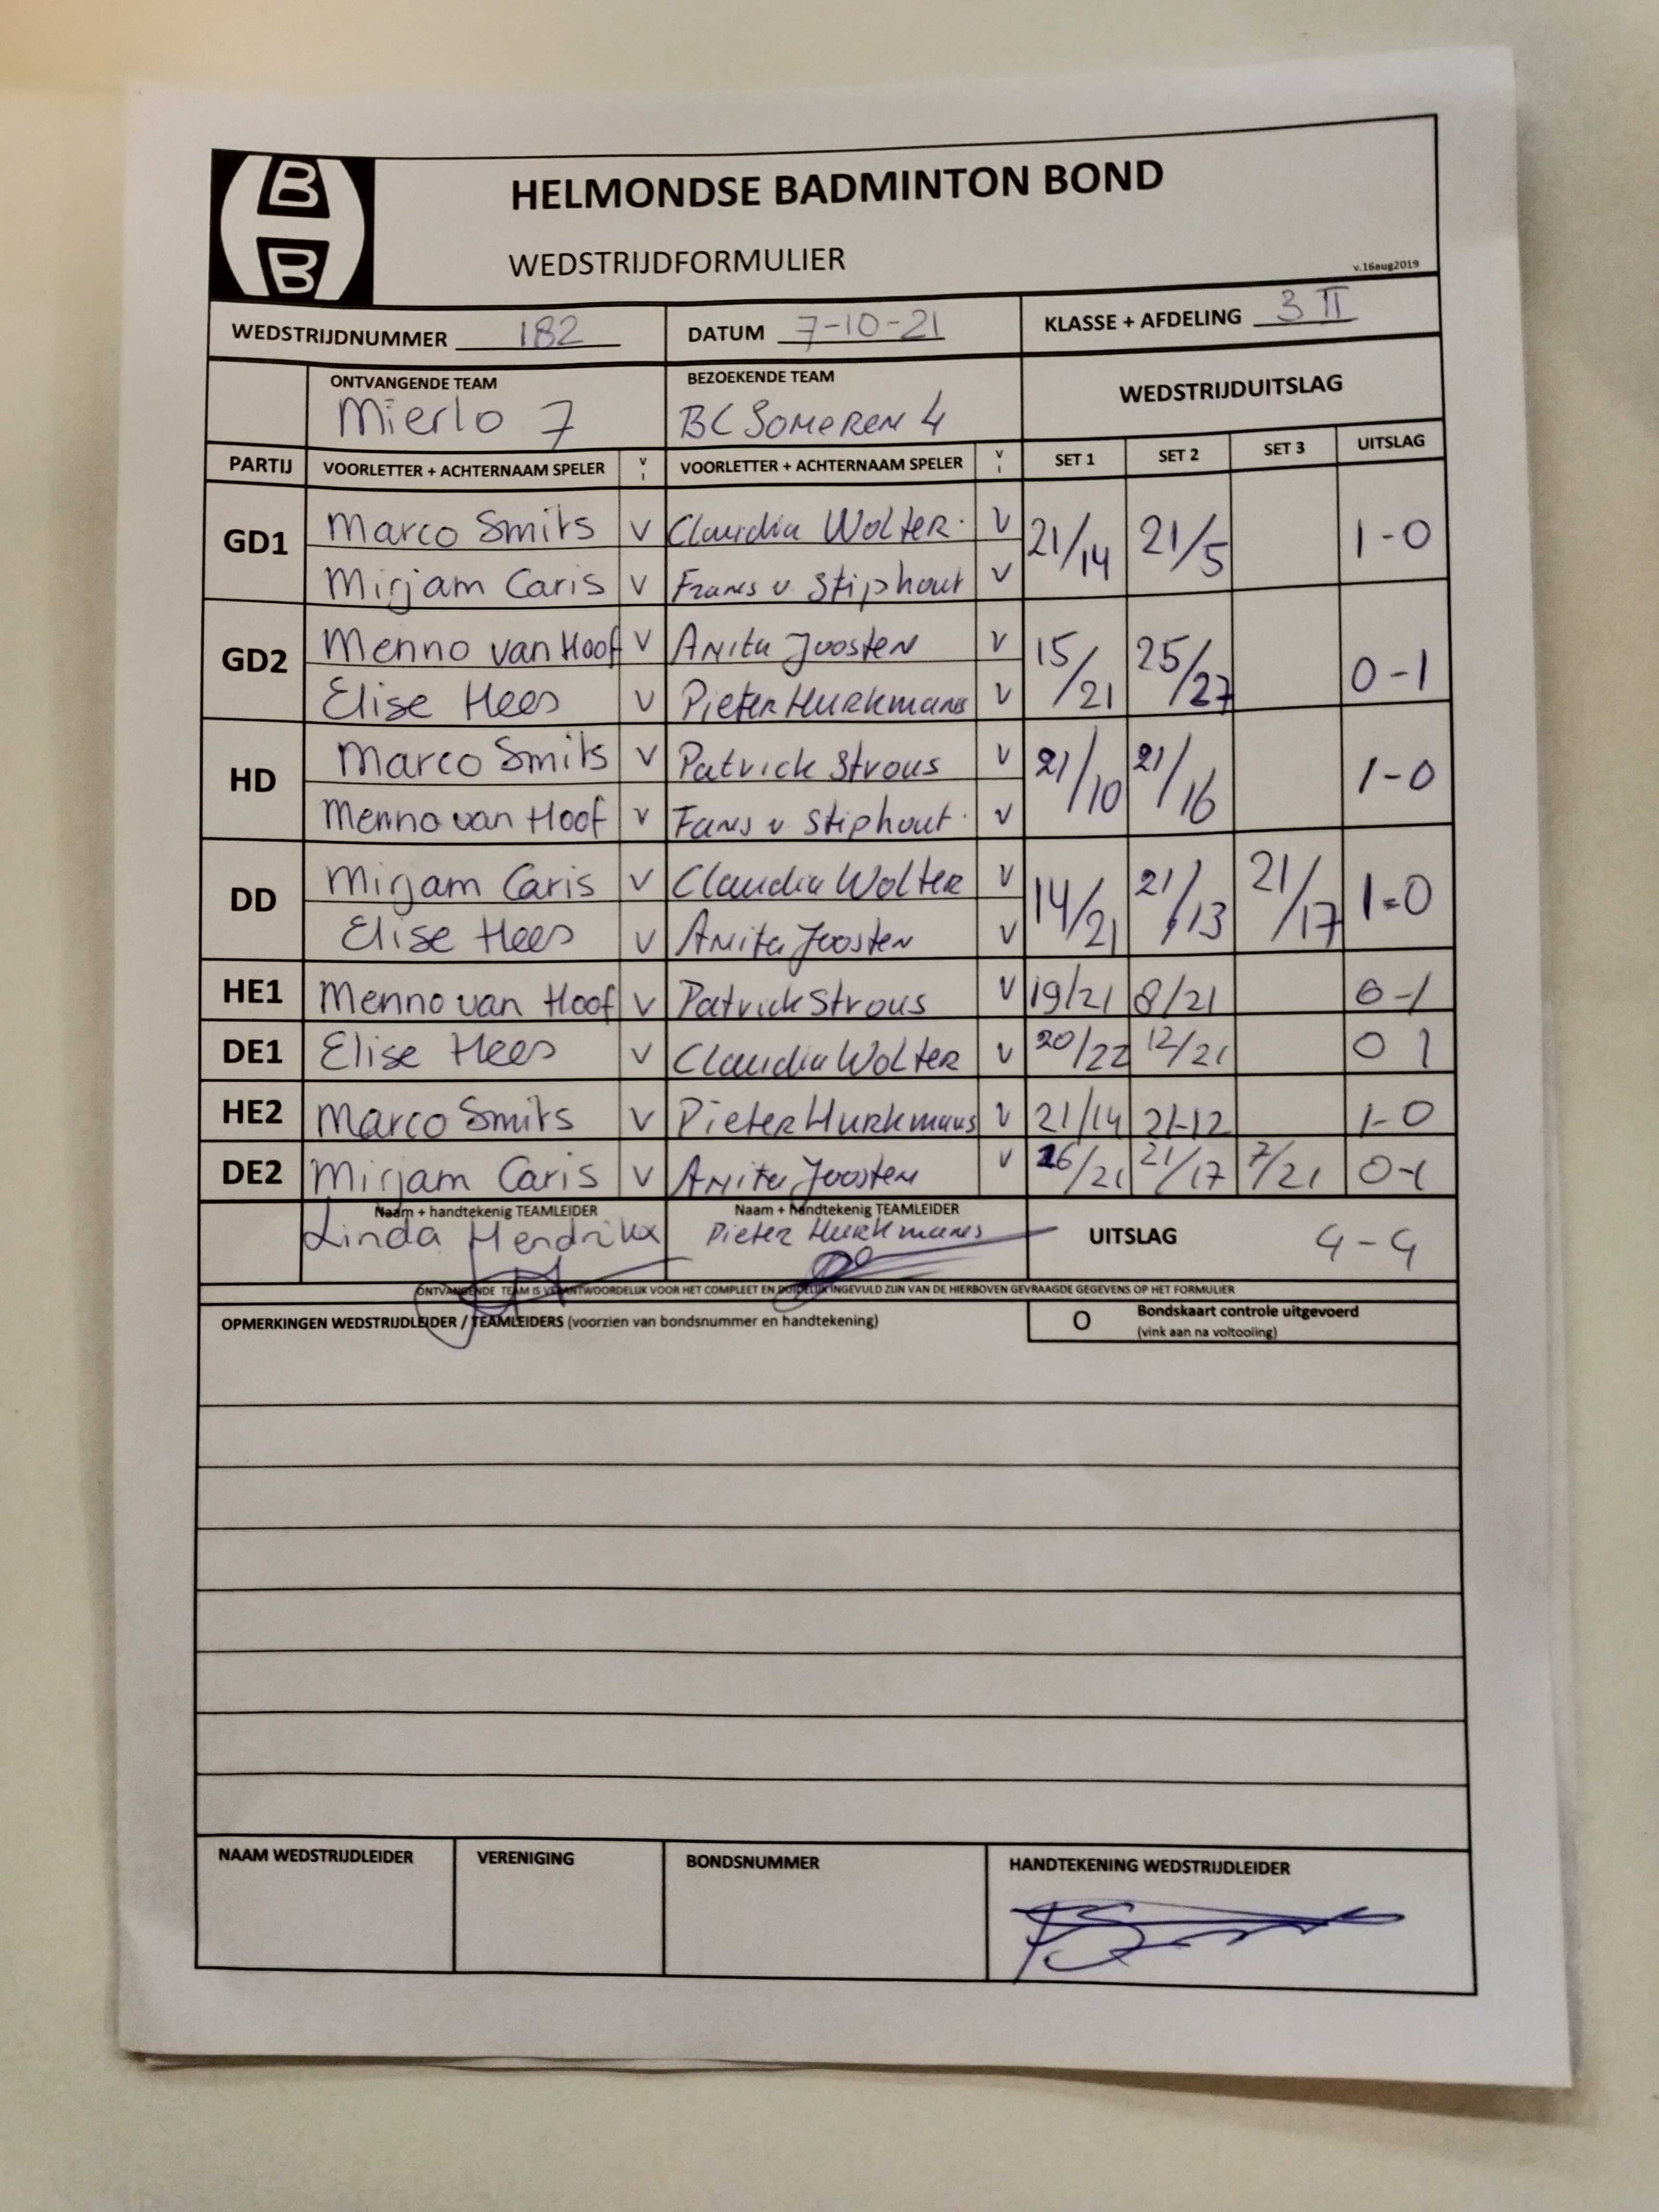 B
B
HELMONDSE BADMINTON BOND
WEDSTRIJDFORMULIER
v.16aug2019
WEDSTRIJDNUMMER 182 DATUM 7-10-21 KLASSE + AFDELING 3 II
ONTVANGENDE TEAM BEZOEKENDE TEAM WEDSTRIJDUITSLAG
Mierlo 7 BC SOMEREN 4
PARTIJ VOORLETTER + ACHTERNAAM SPELER V VOORLETTER + ACHTERNAAM SPELER V SET 1 SET 2 SET 3 UITSLAG
GD1 Marco Smits V Claudia Wolter V 21/14 21/5 1-0
Mirjam Caris V Frans v Stiphout V
GD2 Menno van Hoof V Anita Joosten V 15/21 25/27 0-1
Elise Hees V Pieter Hurkmans V
HD Marco Smits V Patrick Strous V 21/10 21/16 1-0
Menno van Hoof V Fans v Stiphout V
DD Mirjam Caris V Claudia Wolter V 14/21 21/13 21/17 1-0
Elise Hees V Anita Joosten V
HE1 Menno van Hoof V Patrick Strous V 19/21 8/21 0-1
DE1 Elise Hees V Claudia Wolter V 20/22 12/21 0 1
HE2 Marco Smits V Pieter Hurkmans V 21/14 21-12 1-0
DE2 Mirjam Caris V Anita Joosten V 16/21 21/17 7/21 0-1
Naam + handtekenig TEAMLEIDER Naam + handtekenig TEAMLEIDER
Linda Hendrikx Pieter Hurkmans UITSLAG 4-4
ONTVANGENDE TEAM IS VERANTWOORDELIJK VOOR HET COMPLEET EN DUIDELIJK INGEVULD ZIJN VAN DE HIERBOVEN GEVRAAGDE GEGEVENS OP HET FORMULIER
OPMERKINGEN WEDSTRIJDLEIDER / TEAMLEIDERS (voorzien van bondsnummer en handtekening) O Bondskaart controle uitgevoerd
(vink aan na voltooiing)
NAAM WEDSTRIJDLEIDER VERENIGING BONDSNUMMER HANDTEKENING WEDSTRIJDLEIDER